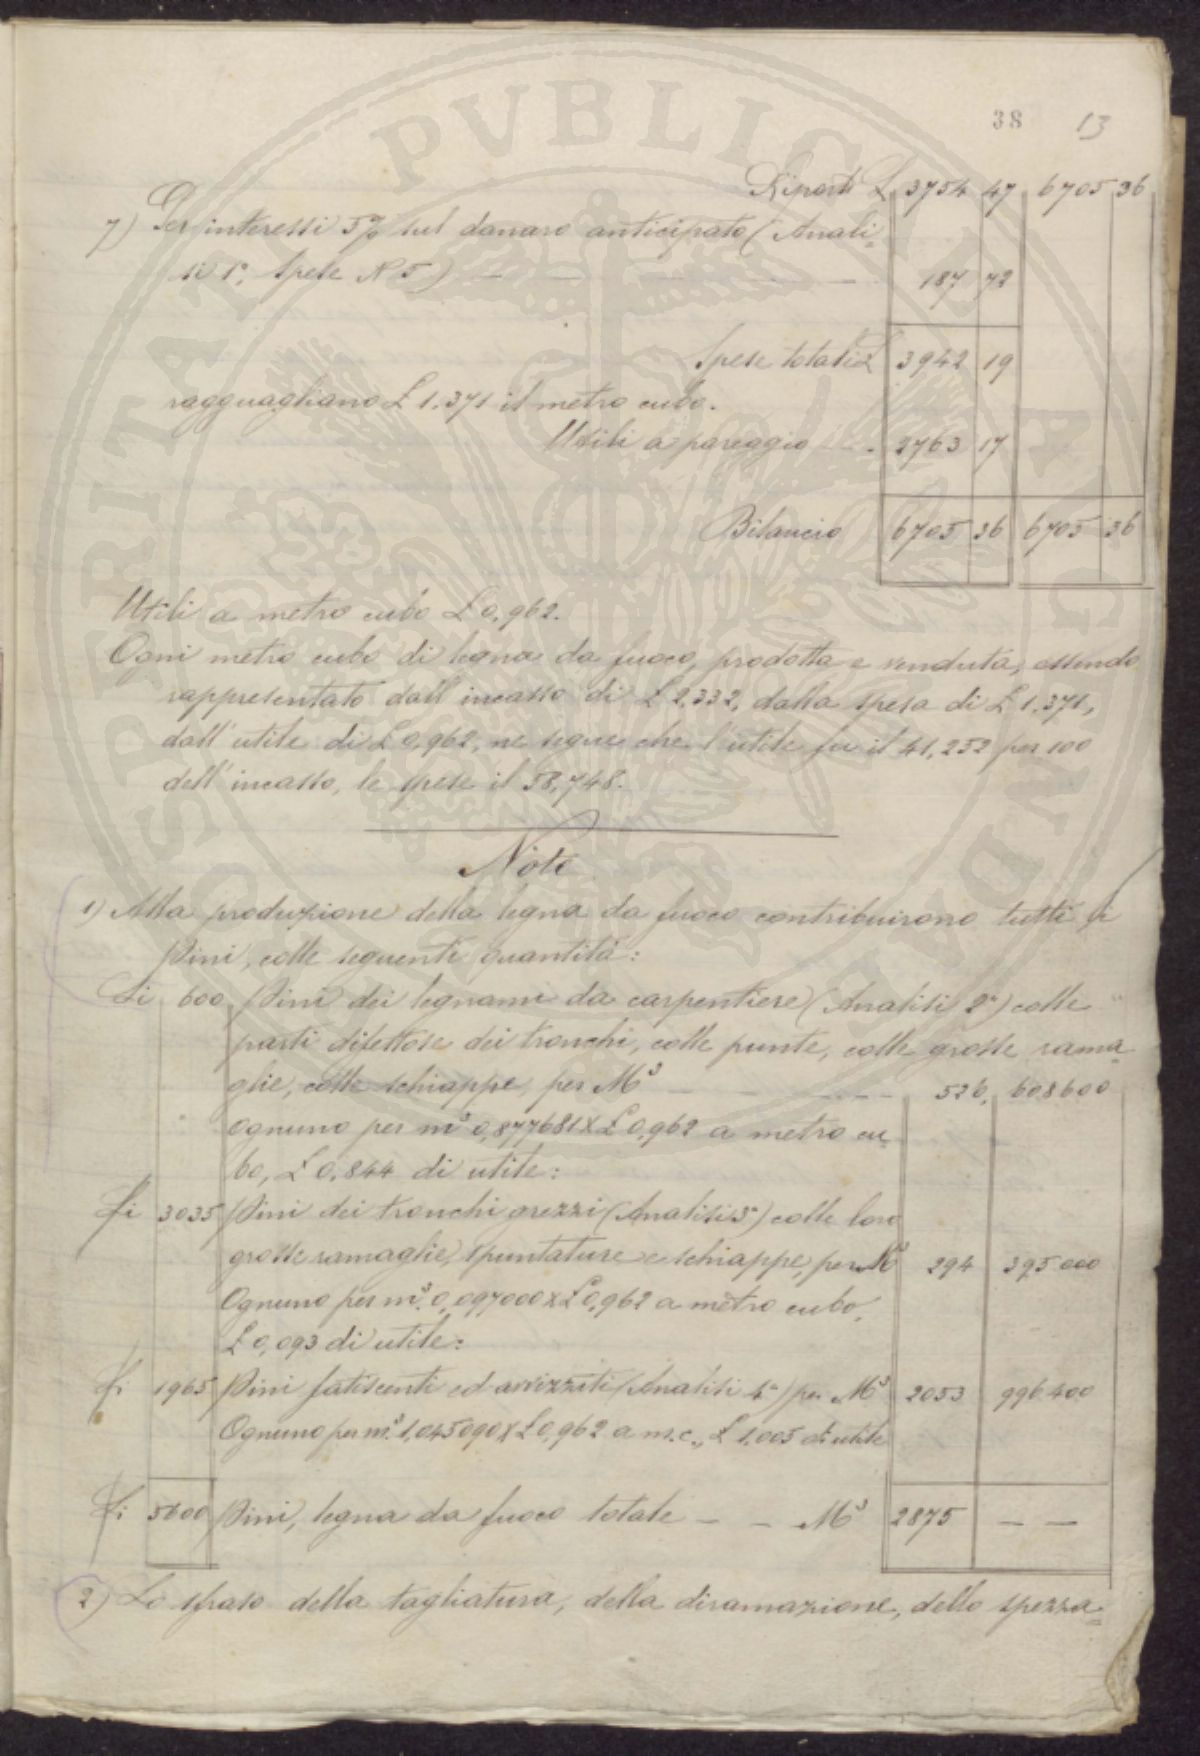 PVBLICAE
PROSPERITATI
AVGENDAE
38 13
Riporti L 3754 47 6705 36
7) Per interessi 5% sul danaro anticipato (Anali=
si 1ª, Spese N 5) — — — 187 72
Spese totali £ 3942 19
ragguagliano £ 1.371 il metro cubo.
Utili a pareggio - - 2763 17
Bilancio 6705 36 6705 36
Utili a metro cubo £ 0,962.
Ogni metro cubo di legna da fuoco, prodotta e venduta, essendo
rappresentato dall'incasso di £ 2,332, dalla spesa di £ 1.371,
dall'utile di £ 0,962, ne segue che l'utile fu il 41,252 per 100
dell'incasso, le spese il 58,748.
Note
1) Alla produzione della legna da fuoco contribuirono tutti i
Pini, colle seguenti quantità:
Di 600 Pini dei legnami da carpentiere (Analisi 2ª) colle
parti difettose dei tronchi, colle punte, colle grosse rama=
glie, colle schiappe, per M³ — — — 526, 608600
Ognuno per m³ 0,877681 X £ 0,962 a metro cu=
bo, £ 0.844 di utile:
Di 3035 Pini dei tronchi grezzi (Analisi 3ª) colle loro
grosse ramaglie, spuntature e schiappe, per M³ 294 395.000
Ognuno per m³. 0,097000 x £ 0,962 a metro cubo,
£ 0,093 di utile:
Di 1965 Pini fatiscenti ed avvizziti (Analisi 4ª) per M³ 2053 996.400
Ognuno per m³. 1,045090 X £ 0,962 a m.c., £ 1.005 di utile
Di 5600 Pini, legna da fuoco totale — — M³ 2875 — —
2) Lo sfraso della tagliatura, della diramazione, dello spezza=